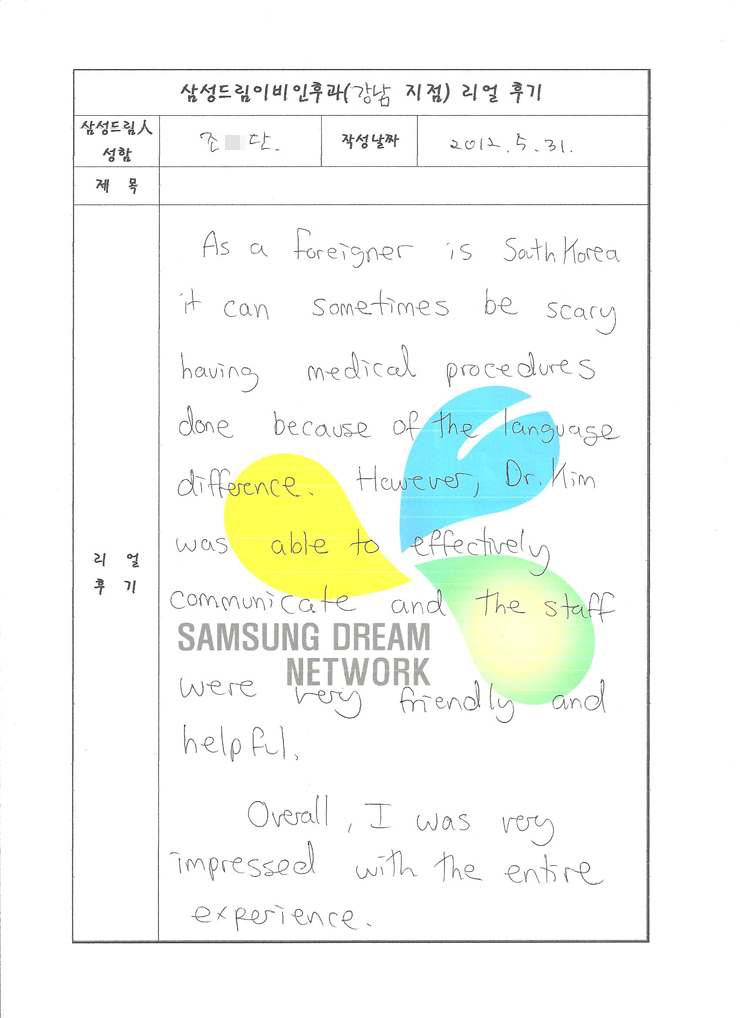 삼성드림이비인후과(강남 지점) 리얼 후기
삼성드림人 성함
조 단.
작성날짜
2012. 5. 31.
제 목
리 얼
후 기
As a foreigner is South Korea
it can sometimes be scary
having medical procedures
done because of the language
difference. However, Dr. Kim
was able to effectively
communicate and the staff
SAMSUNG DREAM
NETWORK
were very friendly and
helpful.
Overall, I was very
impressed with the entire
experience.